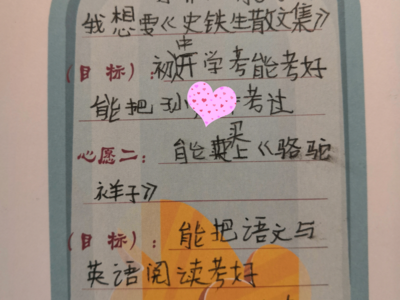 我想要《史铁生散文集》
(目标):初中开学考能考好
能把孙 考过
心愿二: 能买上《骆驼
祥子》
(目标): 能把语文与
英语阅读考好